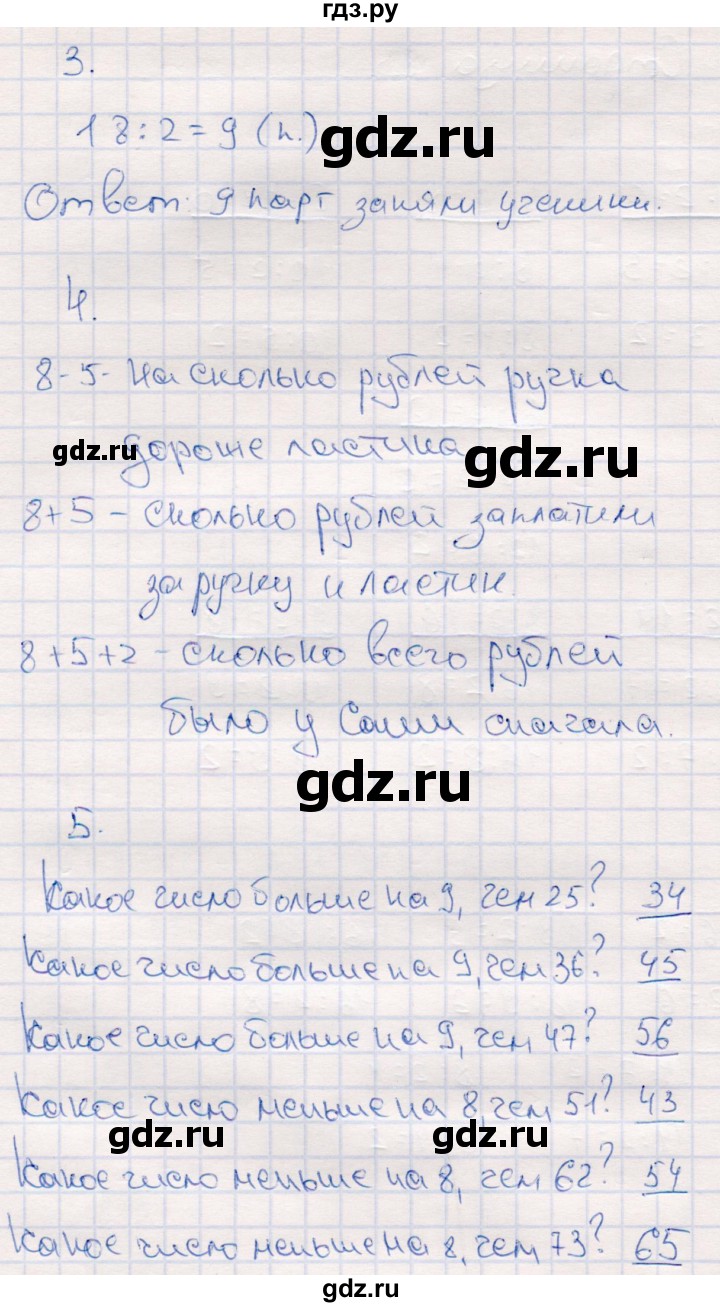 гдз.ру
3.
18:2=9 (п.)
gdz.ru
Ответ: 9 парт заняли ученики.
4.
8-5- На сколько рублей ручка
gdz.ru
дороже ластика
gdz.ru
8+5 - сколько рублей заплатили
за ручку и ластик.
8+5+2 - сколько всего рублей
было у Саши сначала.
gdz.ru
5.
Какое число больше на 9, чем 25? 34
Какое число больше на 9, чем 36? 45
Какое число больше на 9, чем 47? 56
Какое число меньше на 8, чем 51? 43
gdz.ru
gdz.ru
Какое число меньше на 8, чем 62? 54
Какое число меньше на 8, чем 73? 65
gdz.ru